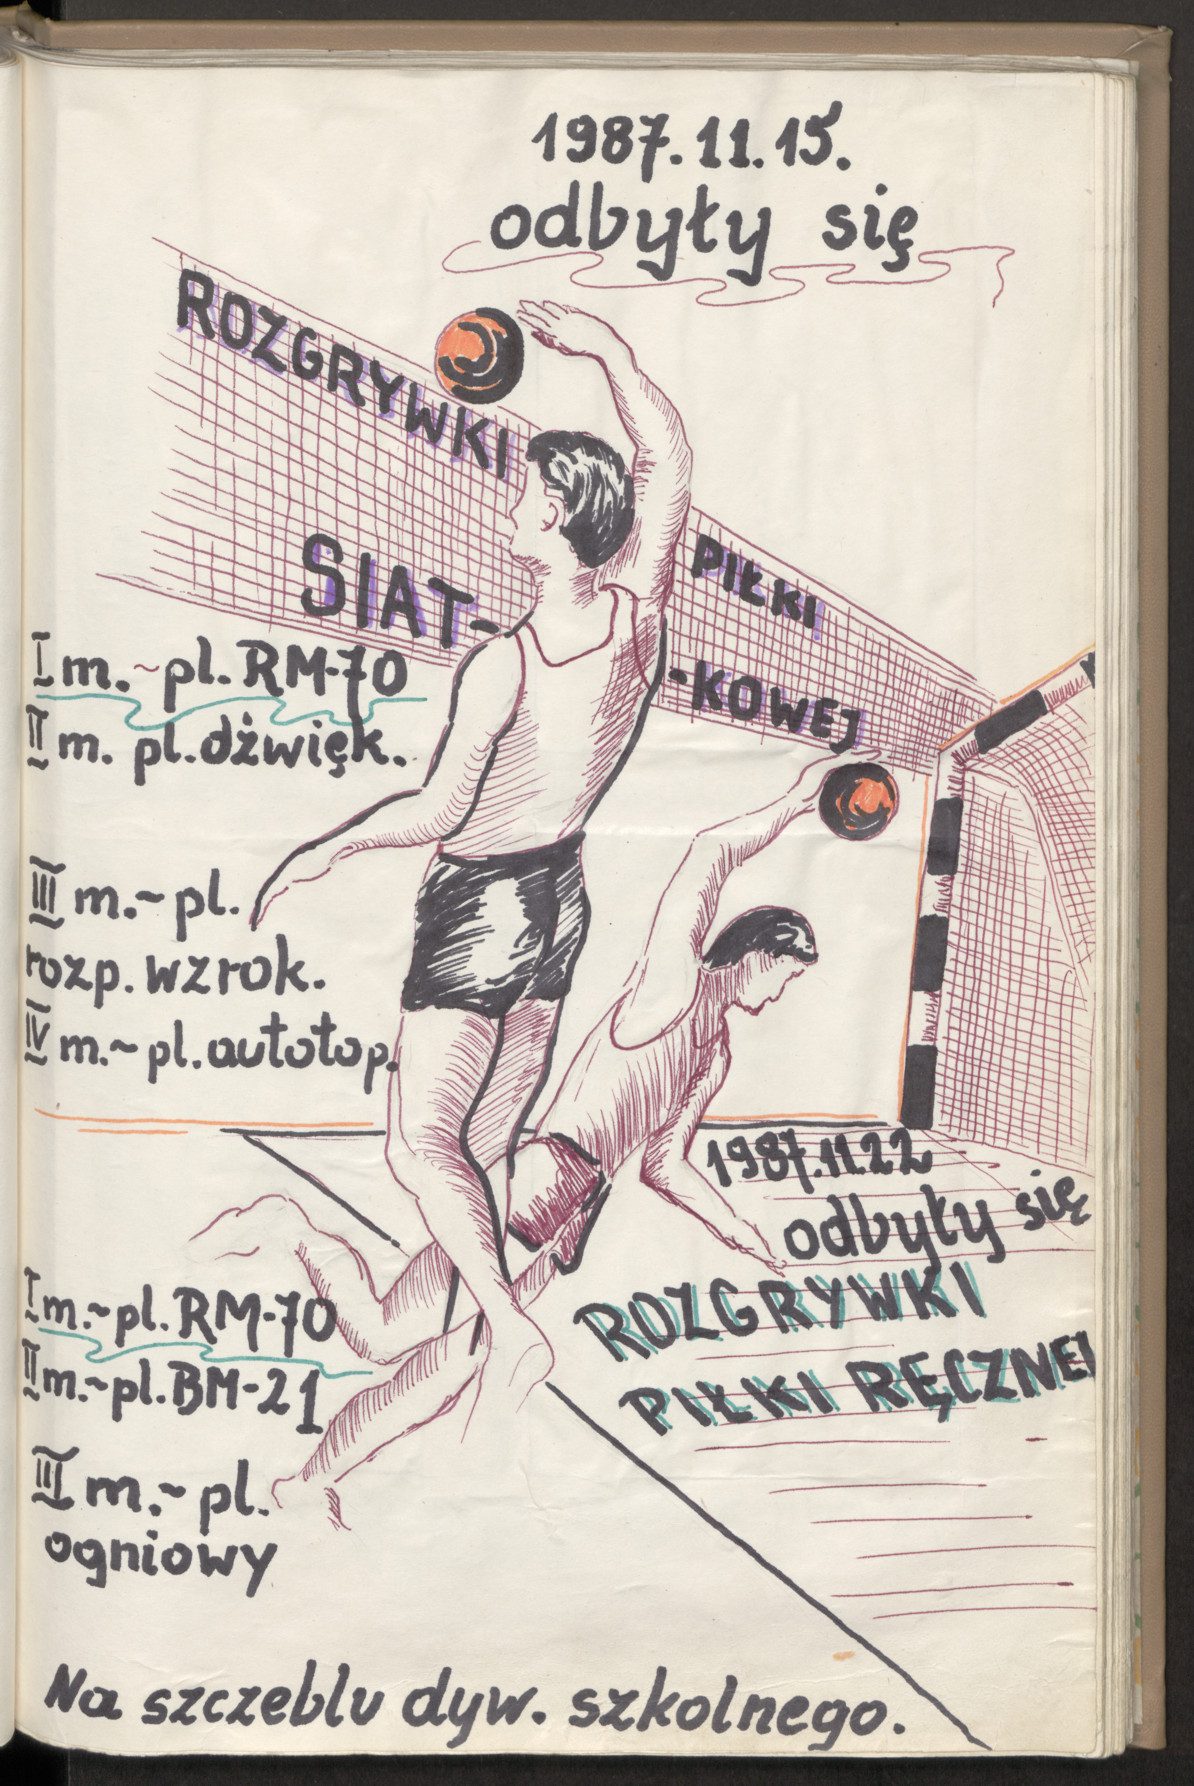 1987.11.15.
odbyły się
ROZGRYWKI
PIŁKI
SIAT-
-KOWEJ
I m.~pl. RM-70
II m. pl. dźwięk.
III m.~pl.
rozp. wzrok.
IV m.~pl. autotop.
1987.11.22
odbyły się
ROZGRYWKI
PIŁKI RĘCZNEJ
I m.~pl. RM-70
II m.~pl. BM-21
III m.~pl.
ogniowy
Na szczeblu dyw. szkolnego.